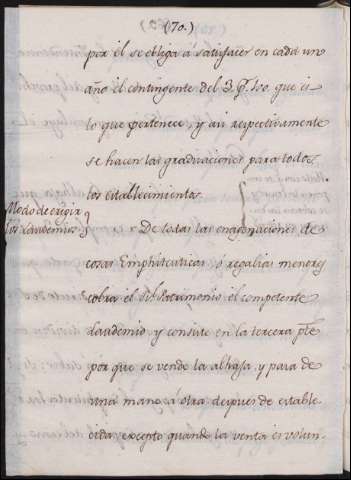 (70.)
por él se obliga á satisfacer en cada un
año el contingente del 3 p.r 100. que es
lo que pertenece, y asi respectivamente
se hacen las graduaciones para todos
los establecimientos.
Modo de exigir
los Laudemios
De todas las enagenaciones de
cosas Emphiteuticas, o regalias menores
cobra el Rl. Patrimonio el competente
Laudemio y consiste en la tercera pte.
por que se vende la alhaja, y para de
una mano á otra despues de estable-
cida, excepto quando la venta es volun-